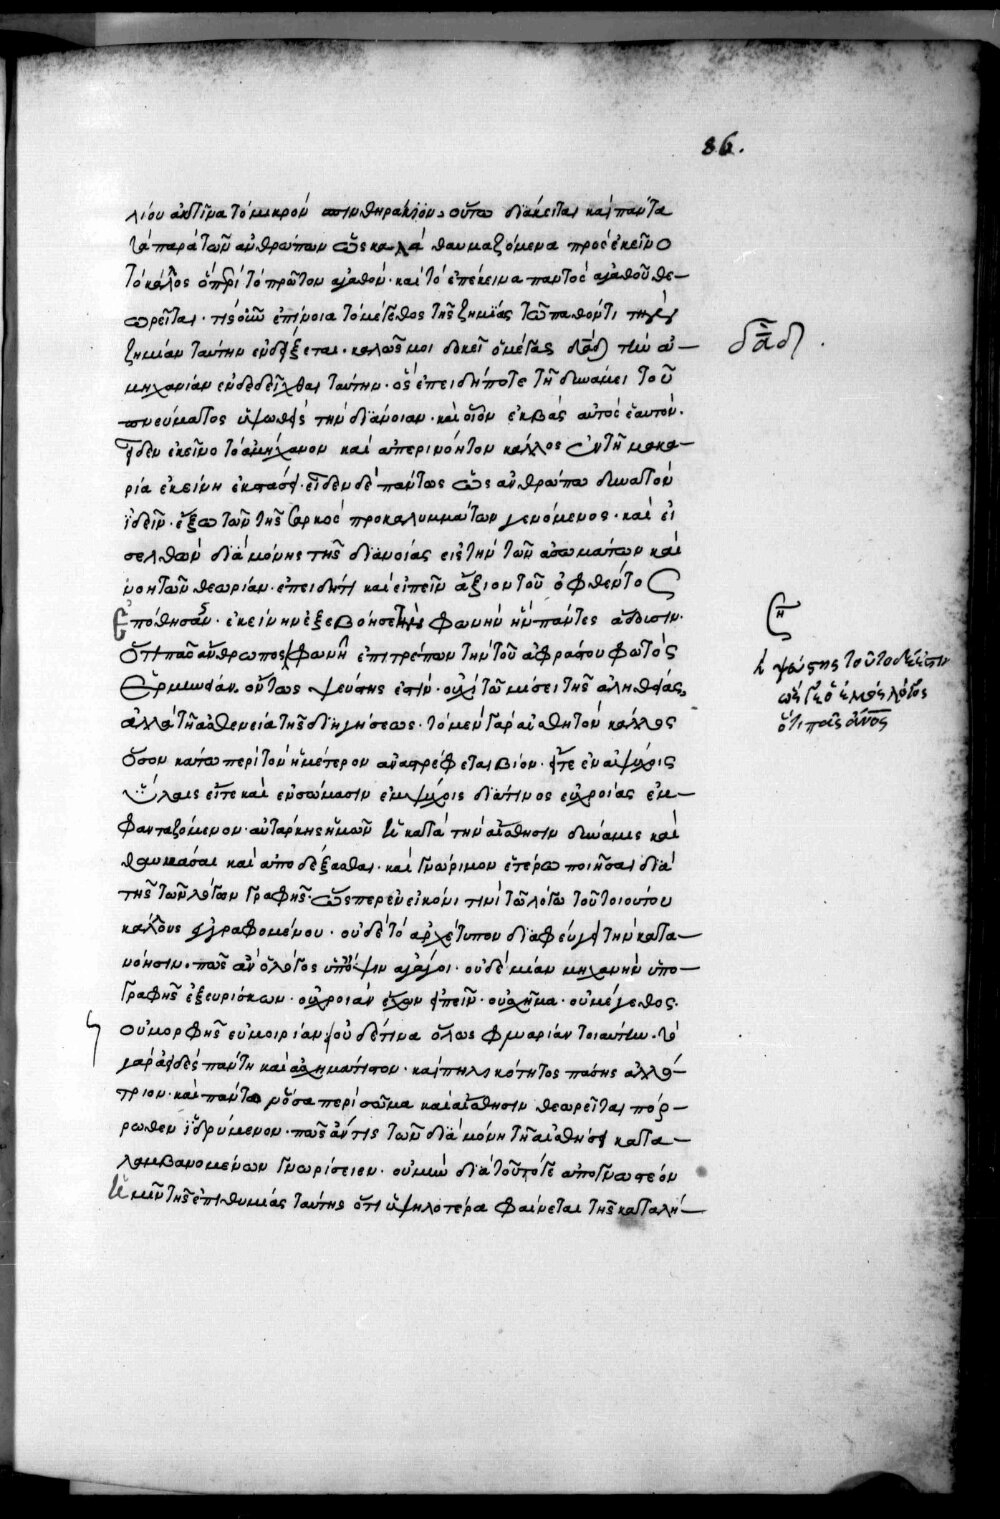 86.
λίου ἀκτῖνα τὸ μικρὸν σπινθηράκιον· οὕτω διάκειται καὶ πάντα
τὰ παρὰ τῶν ἀνθρώπων ὡς καλὰ θαυμαζόμενα πρὸς ἐκεῖνο
τὸ κάλλος ὅπερ τὸ πρῶτον ἀγαθὸν· καὶ τὸ ἐπέκεινα παντὸς ἀγαθοῦ θε-
ωρεῖται· τίς οὖν ἐπίνοια τὸ μέγεθος τῆς ζημίας τῶ παθόντι τὴν
ζημίαν ταύτην ἐνδείξεται· καλῶς μοι δοκεῖ ὁ μέγας δᾱδ τὴν ἀ-
μηχανίαν ἐνδεδεῖχθαι ταύτην· ὃς ἐπειδή ποτε τῆ δυνάμει τοῦ
πνεύματος ὑψωθεὶς τὴν διάνοιαν· καὶ οἷον ἐκβὰς αὐτὸς ἑαυτὸν·
εἶδεν ἐκεῖνο τὸ ἀμήχανον καὶ ἀπερινόητον κάλλος ἐν τῆ μακα-
ρία ἐκείνη ἐκστάσει· εἶδεν δὲ πάντως ὡς ἀνθρώπω δυνατὸν
ἰδεῖν· ἔξω τῶν τῆς σαρκὸς προκαλυμμάτων γενόμενος· καὶ εἰ
σελθὼν διὰ μόνης τῆς διανοίας εἰς τὴν τῶν ἀσωμάτων καὶ
νοητῶν θεωρίαν· ἐπειδή τι καὶ εἰπεῖν ἄξιον τοῦ ὀφθέντος
ἐπόθησεν· ἐκείνην ἐξεβόησε τὴν φωνὴν ἣν πάντες ἄδουσιν·
ὅτι πᾶς ἄνθρωπος φωνῆ ἐπιτρέπων τὴν τοῦ ἀφράστου φωτὸς
ἑρμηνείαν· ὄντως ψεύστης ἐστίν· οὐχὶ τῶ μίσει τῆς ἀληθείας,
ἀλλὰ τῆ ἀσθενεία τῆς διηγήσεως· τὸ μὲν γὰρ αἰσθητὸν κάλλος
ὅσον κάτω περὶ τὸν ἡμέτερον ἀναστρέφεται βίον· εἴτε ἐν ἀψύχοις
ὕλαις εἴτε καὶ ἐν σώμασιν ἐμψύχοις διά τινος εὐχροίας ἐμ-
φανταζόμενον· αὐτάρκης ἡμῶν ἡ κατὰ τὴν αἴσθησιν δύναμις καὶ
θαυμάσαι καὶ ἀποδέξασθαι· καὶ γνώριμον ἑτέρω ποιῆσαι διὰ
τῆς τῶν λόγων γραφῆς· ὥσπερ ἐν εἰκόνι τινὶ τῶ λόγω τοῦ τοιούτου
κάλλους ἐγγραφομένου· οὗ δὲ τὸ ἀρχέτυπον διαφεύγει τὴν κατα-
νόησιν· πῶς ἂν ὁ λόγος ὑπ᾽ ὄψιν ἀγάγοι· οὐδεμίαν μηχανὴν ὑπο-
γραφῆς ἐξευρίσκων· οὐ χροιὰν ἔχων εἰπεῖν· οὐ σχῆμα· οὐ μέγεθος·
οὐ μορφῆς εὐμοιρίαν· οὐδέ τινα ὅλως φλυαρίαν τοιαύτην· τὸ
γὰρ ἀειδὲς πάντη καὶ ἀσχημάτιστον· καὶ πηλικότητος πάσης ἀλλό-
τριον· καὶ πάντων ὅσα περὶ σῶμα καὶ αἴσθησιν θεωρεῖται πόρ-
ρωθεν ἱδρύμενον· πῶς ἄν τις τῶν διὰ μόνη τῆ αἰσθήσει κατα-
λαμβανομένων γνωρίσειεν· οὐ μὴν διὰ τοῦτό γε ἀπογνωστέον
ἡμῖν τῆς ἐπιθυμίας ταύτης ὅτι ὑψηλοτέρα φαίνεται τῆς καταλή-
δᾱδ.
ση
ψεύστης τοῦτο δέ ἐστιν
ὡς ὁ ἐμὸς λόγος
ὅτι πᾶς ἄνος